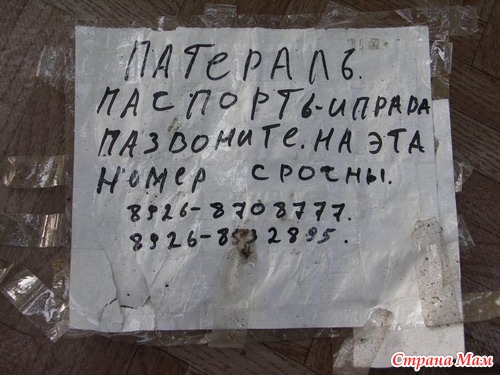 ПАТЕРАЛЬ.
ПАСПОРТЬ-ИПРАВА
ПАЗВОНИТЕ.НА ЭТА
НОМЕР СРОЧНЫ.
8926-8708777.
Страна Мам